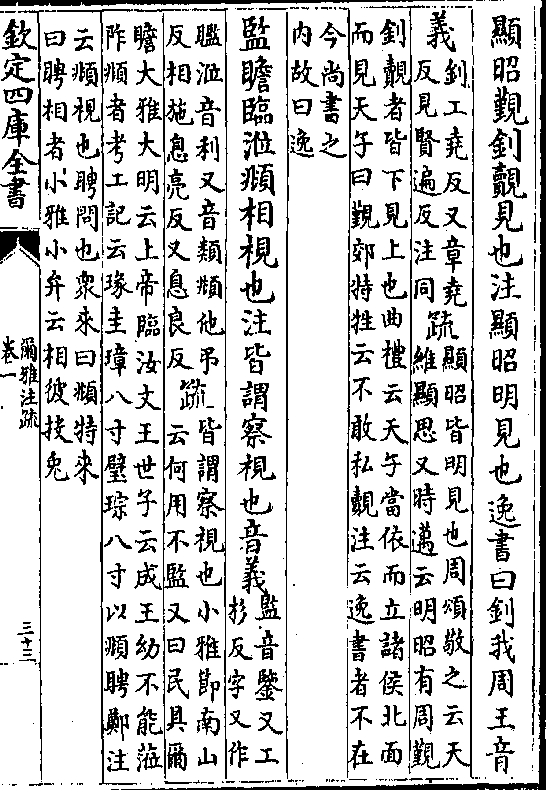 顯昭覲釗覿見也注顯昭明見也逸書曰釗我周王音
義釗工堯反又章堯
反見賢遍反注同疏顯昭皆明見也周頌敬之云天
維顯思又時邁云明昭有周覲
釗覿者皆下見上也曲禮云天子當依而立諸侯北面
而見天子曰覲郊特牲云不敢私覿注云逸書者不在
今尚書之
内故曰逸
監瞻臨涖頫相視也注皆謂察視也音義監音鑒又工
杉反字又作
涖音利又音類頫他弔
反相施息亮反又息良反疏皆謂察視也小雅節南山
云何用不監又曰民具爾
瞻大雅大明云上帝臨汝文王世子云成王幼不能蒞
阼頫者考工記云瑑圭璋八寸璧琮八寸以頫聘鄭注
云頫視也聘問也衆來曰頫特來
曰聘相者小雅小弁云相彼投兔
欽定四庫全書
爾雅注疏
卷一
三十三